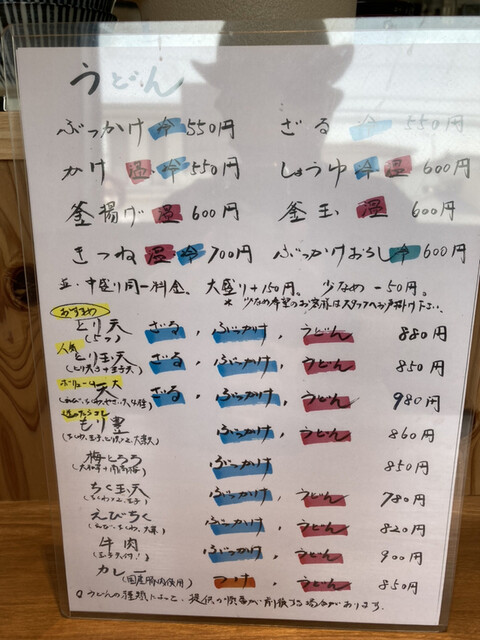 うどん
ぶっかけ 冷 550円 ざる 冷 550円
かけ 温 冷 550円 しょうゆ 冷 温 600円
釜揚げ 温 600円 釜玉 温 600円
きつね 温 冷 700円 ぶっかけおろし 冷 600円
並・中盛り同一料金、大盛り+150円。少なめ -50円。
* 少なめ希望のお客様はスタッフへお声掛け下さい。
おすすめ
とり天 ざる、ぶっかけ、うどん 880円
(5つ)
人気
とり玉天 ざる、ぶっかけ、うどん 850円
ボリューム大
天 ざる、ぶっかけ、うどん 980円
迷ったらコレ
もり豊 ぶっかけ、うどん 860円
梅とろろ ぶっかけ 850円
ちく玉天 ぶっかけ、うどん 780円
えびちく ぶっかけ、うどん 820円
牛肉 ぶっかけ、うどん 900円
カレー つけ、うどん 850円
(国産豚肉使用)
うどんの種類によって、提供の順番が前後する場合があります。